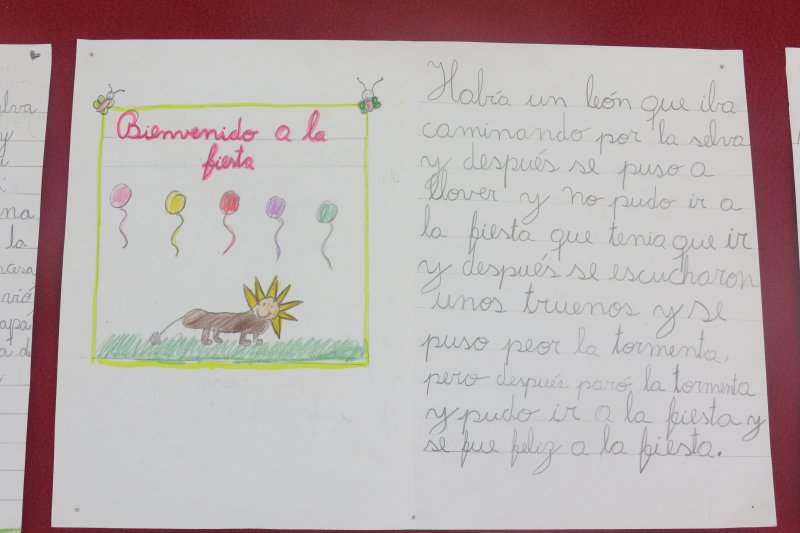 Bienvenido a la
fiesta
Había un león que iba
caminando por la selva
y después se puso a
llover y no pudo ir a
la fiesta que tenia que ir
y después se escucharon
unos truenos y se
puso peor la tormenta,
pero después paró la tormenta
y pudo ir a la fiesta y
se fue feliz a la fiesta.